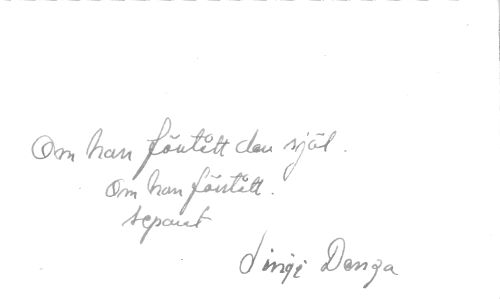 Om han förstått den själ.
Om han förstått.
separat
Luigi Denza